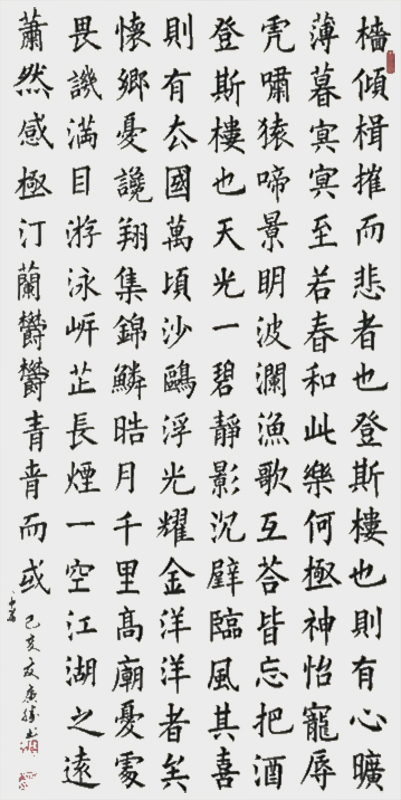 檣傾楫摧而悲者也登斯樓也則有心曠
薄暮冥冥至若春和此樂何極神怡寵辱
虎嘯猿啼景明波瀾漁歌互荅皆忘把酒
登斯樓也天光一碧靜影沉璧臨風其喜
則有去國萬頃沙鷗浮光耀金洋洋者矣
懷鄉憂讒翔集錦鱗晧月千里高廟憂處
畏譏滿目游泳岸芷長煙一空江湖之遠
蕭然感極汀蘭鬱鬱青青而或
己亥